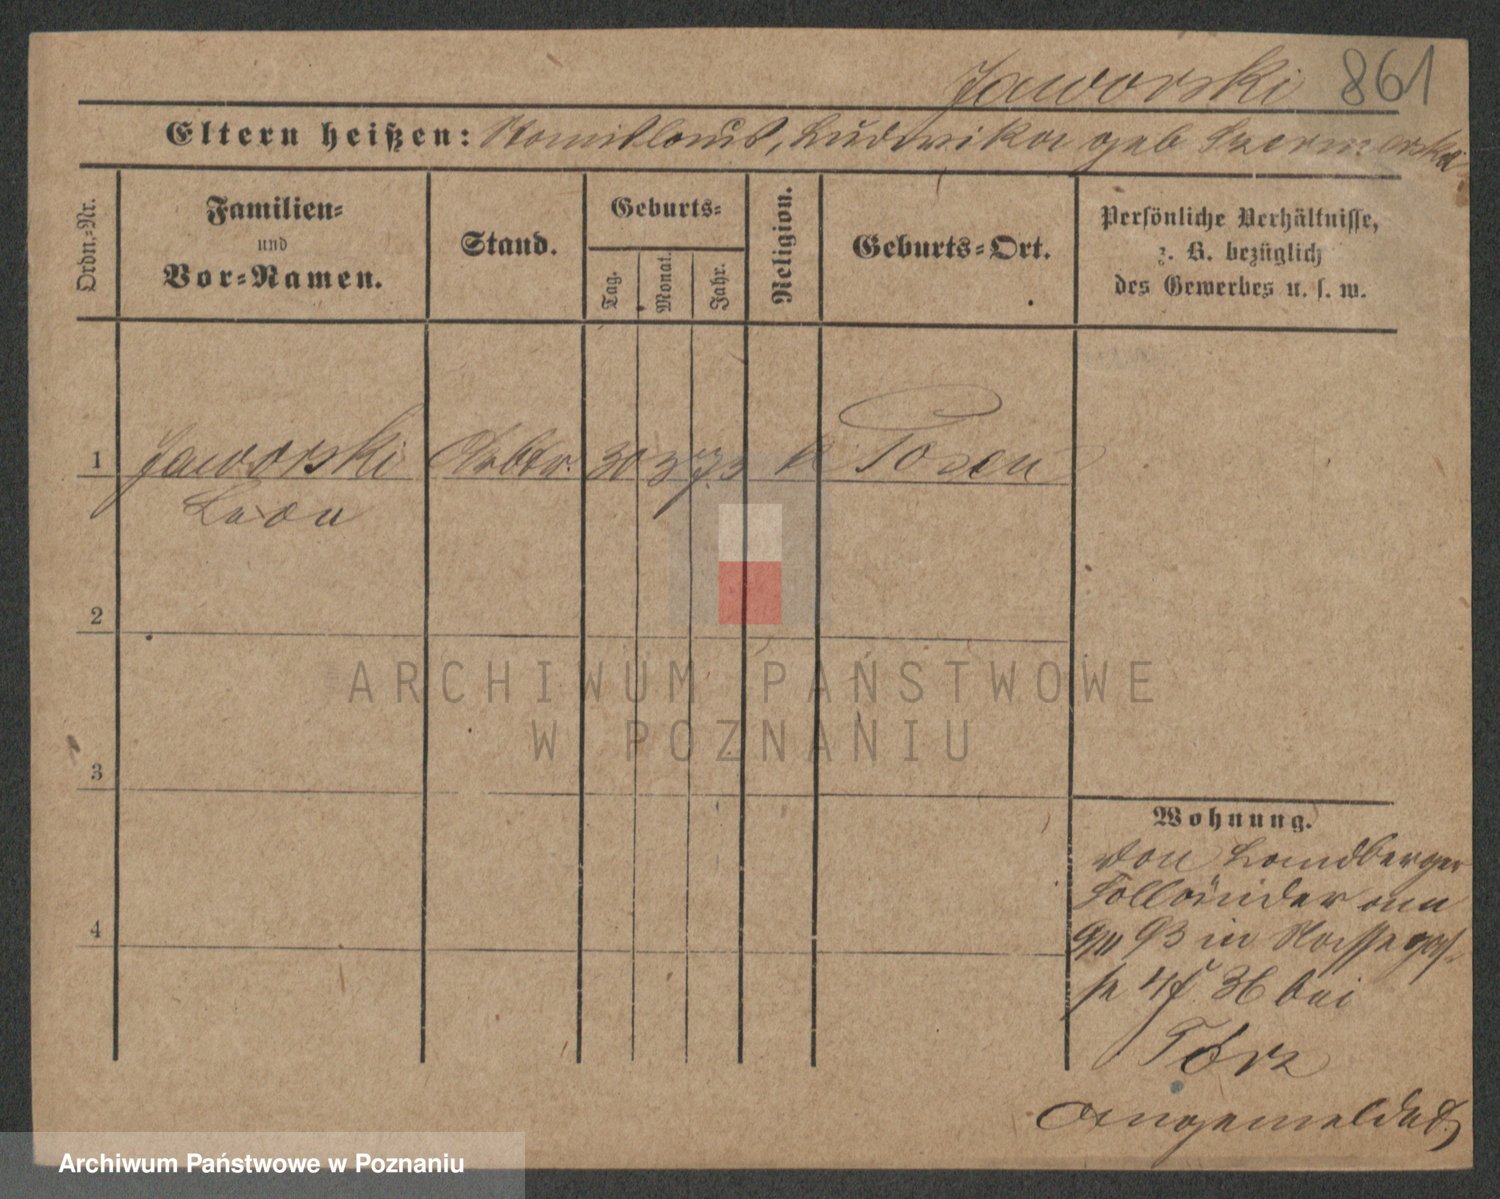 Jaworski 861
Eltern heißen: Ludwika geb
Ordn.-Nr.
Familien-
und
Vor-Namen.
Stand.
Geburts-
Tag.
Monat.
Jahr.
Religion.
Geburts-Ort.
Persönliche Verhältnisse,
z. B. bezüglich
des Gewerbes u. s. w.
1 Jaworski Arbtr. 30 3 73 k Posen
Leon
2
3
4
Wohnung.
von Landberger
Holländer am
93 in
36 bei
Törz
Angemeldet
ARCHIWUM PAŃSTWOWE
W POZNANIU
Archiwum Państwowe w Poznaniu